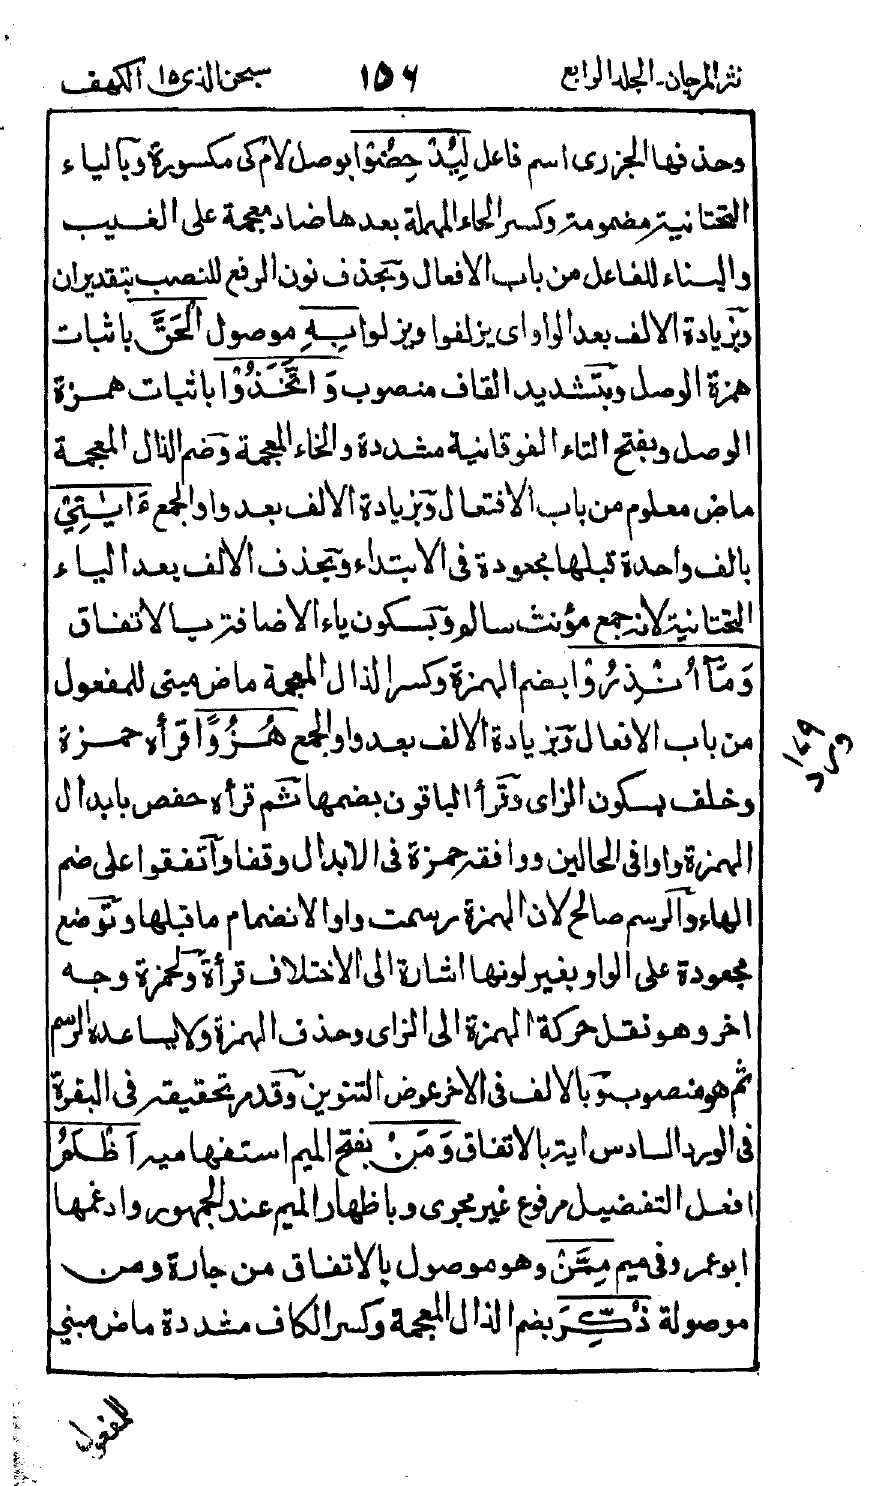 نثر المرجان ـ الجلد الرابع ١٥٦ سبحن الذى ١٥ الكهف
وحذفها الجزرى اسم فاعل لِيُدْحِضُوْا بوصل لام كى مكسورة وبالياء
التحتانية مضمومة وكسر الحاء المهملة بعدها ضاد معجمة على الغيب
والبناء للفاعل من باب الافعال وبحذف نون الرفع للنصب بتقدير ان
وبزيادة الالف بعد الواو اى يزلفوا ويزلوا بِهِ موصول الْحَقَّ باثبات
همزة الوصل وبتشديد القاف منصوب وَاتَّخَذُوْا باثبات همزة
الوصل وبفتح التاء الفوقانية مشددة والخاء المعجمة وضم الذال المعجمة
ماض معلوم من باب الافتعال وبزيادة الالف بعد واو الجمع ءَايٰتِيْ
بالف واحدة قبلها مجعودة فى الابتداء وبحذف الالف بعد الياء
التحتانية لانه جمع مؤنث سالم وبسكون ياء الاضافة بالاتفاق
وَمَآ اُنْذِرُوْا بضم الهمزة وكسر الذال المعجمة ماض مبنى للمفعول
من باب الافعال وبزيادة الالف بعد واو الجمع هُزُوًا قرأه حمزة
وخلف بسكون الزاى وقرأ الباقون بضمها ثم قرأه حفص بابدال
الهمزة واوا فى الحالين ووافقه حمزة فى الابدال وقفا واتفقوا على ضم
الهاء والرسم صالح لان الهمزة رسمت واوا لانضمام ما قبلها وتوضع
مجعودة على الواو بغير لونها اشارة الى الاختلاف قرأة ولحمزة وجه
اخر وهو نقل حركة الهمزة الى الزاى وحذف الهمزة ولا يساعده الرسم
ثم هو منصوب وبالالف فى الاخر عوض التنوين وقد مر تحقيقه فى البقرة
فى الورد السادس اية بالاتفاق وَمَنْ بفتح الميم استفهامية اَظْلَمُ
افعل التفضيل مرفوع غير مجرى وباظهار الميم عند الجمهور وادغمها
ابو عمرو فى ميم مِمَّنْ وهو موصول بالاتفاق من جارة ومن
موصولة ذُكِّرَ بضم الذال المعجمة وكسر الكاف مشددة ماض مبنى
للمفعول
ورد
١٤٩